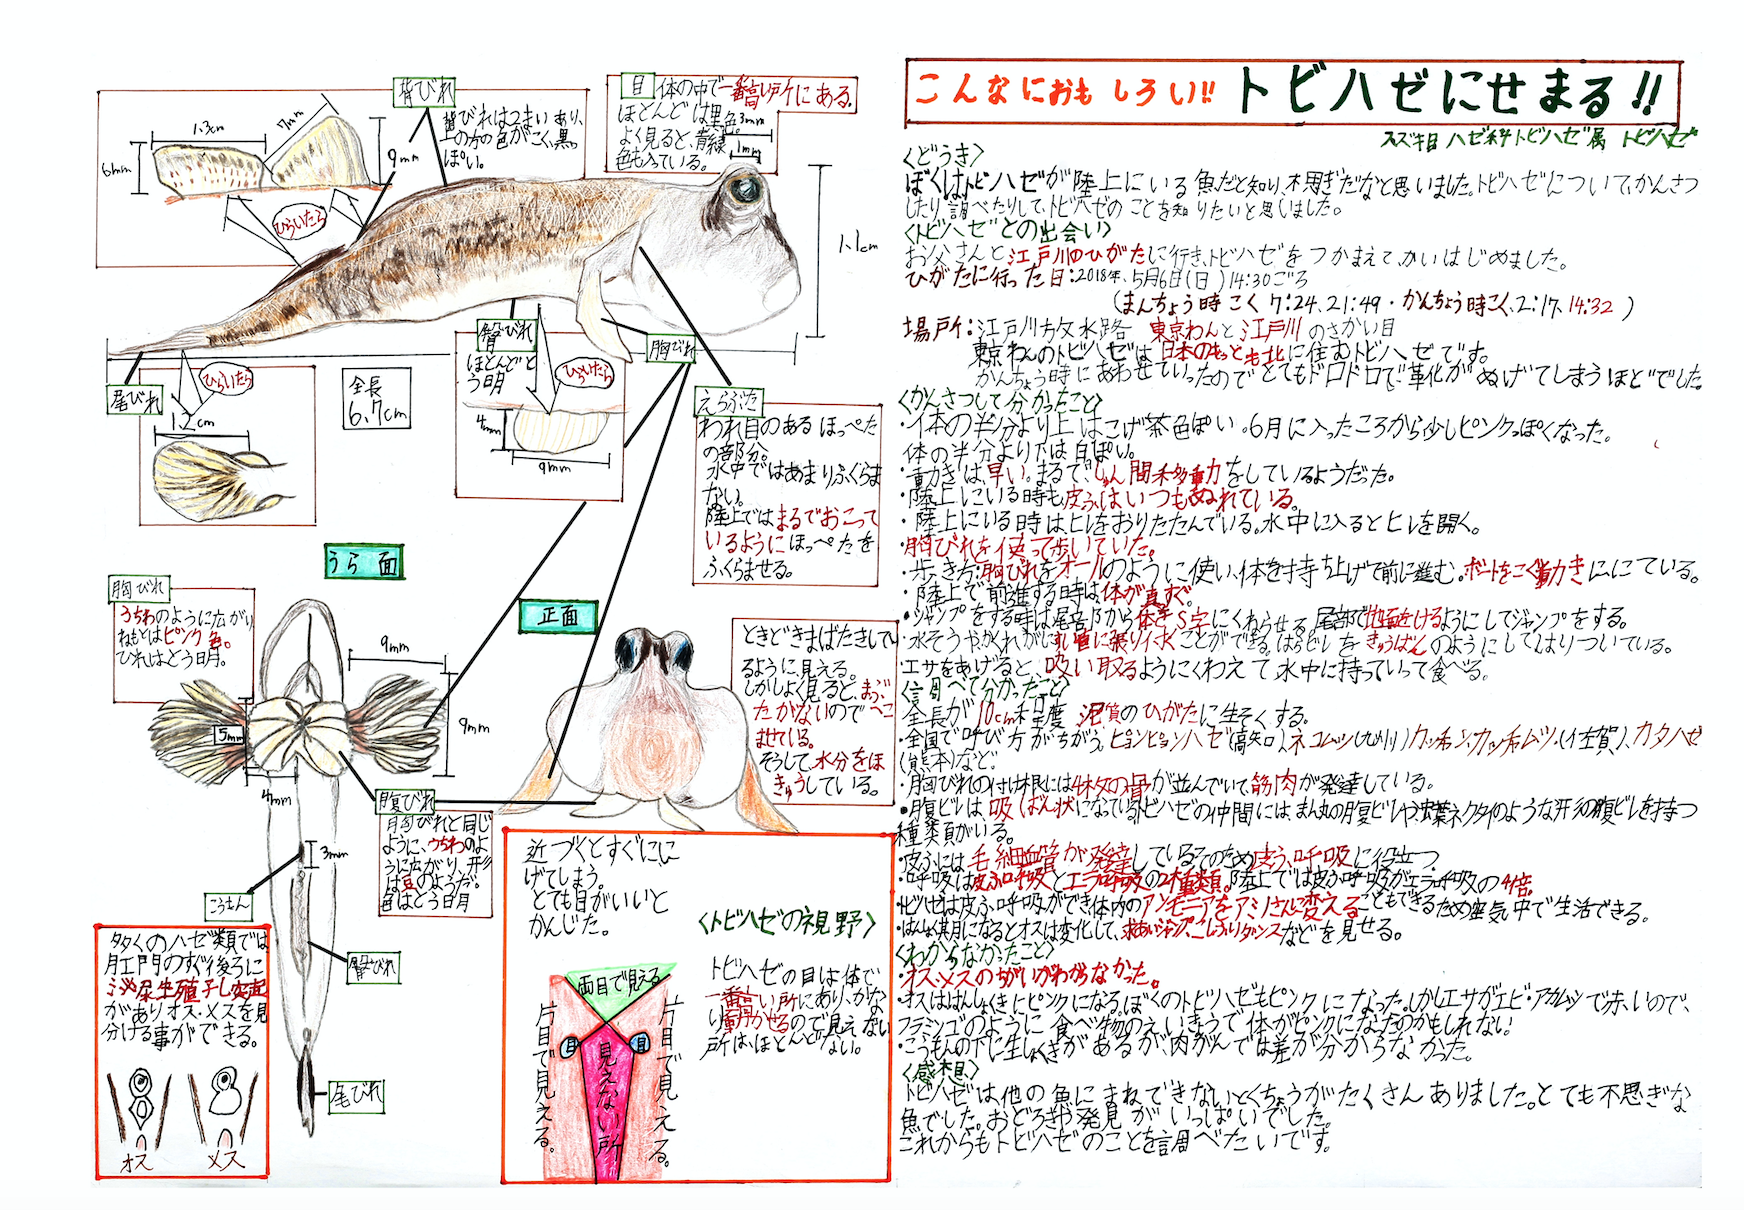 こんなにおもしろい!! トビハゼにせまる!!
スズキ目 ハゼ科トビハゼ属 トビハゼ
〈どうき〉
ぼくはトビハゼが陸上にいる魚だと知り、不思ぎだなと思いました。トビハゼについてかんさつ
したり調べたりして、トビハゼのことを知りたいと思いました。
〈トビハゼとの出会い〉
お父さんと江戸川のひがたに行き、トビハゼをつかまえて、かいはじめました。
ひがたに行った日:2018年、5月6日(日)14:30ごろ
(まんちょう時こく 7:24、21:49・かんちょう時こく、2:17、14:32)
場戸所:江戸川放水路 東京わんと江戸川のさかい目
東京わんのトビハゼは日本のもっとも北に住むトビハゼです。
かんちょう時にあわせていったのでとてもドロドロで革化がぬげてしまうほどでした。
〈かんさつして分かったこと〉
・体の半分より上はこげ茶色ぽい。6月に入ったころから少しピンクっぽくなった。
体の半分より下は白ぽい。
・動きは、早い。まるで、しゅん間移動をしているようだった。
・陸上にいる時も皮ふはいつもぬれている。
・陸上にいる時はヒレをおりたたんでいる。水中に入るとヒレを開く。
・胸びれを使って歩いていた。
・歩き方:胸びれをオールのように使い、体を持ち上げて前に進む。ボートをこぐ動きににている。
・陸上で前進する時は、体が真すぐ。
・ジャンプをする時は尾部から体をS字にくねらせる。尾部で地面をけるようにしてジャンプをする。
・水そうやかくれがに垂直に張り付くことができる。はらビレをきゅうばんのようにしてはりついている。
・エサをあげると、吸い取るようにくわえて水中に持っていって食べる。
〈調べて分かったこと〉
全長が10cm程度 泥質のひがたに生そくする。
・全国で呼び方がちがう。ピョンピョンハゼ(高知)、ネコムツ(九州)カッチャン、カッチャムツ、(佐賀)、カタハゼ
(熊本)など。
・胸びれの付け根には4枚の骨が並んでいて、筋肉が発達している。
・腹ビレは、吸ばん状になっている。トビハゼの仲間には、まん丸の腹ビレや、蝶ネクタイのような形の腹ビレを持つ
種類がいる。
・皮ふには毛細血管が発達しているそのため皮ふ呼吸に役立つ。
・呼吸は皮ふ呼吸とエラ呼吸の2種類。陸上では皮ふ呼吸がエラ呼吸の4倍。
トビハゼは皮ふ呼吸ができ、体内のアンモニアをアミノさんに変えることもできるため空気中で生活できる。
・はんしょく期になるとオスは変化して、求あいジャンプ、こしふりダンスなどを見せる。
〈わからなかったこと〉
・オス、メスのちがいがわからなかった。
・オスははんしょくきにピンクになる。ぼくのトビハゼもピンクになった。しかしエサがエビ・アカムシで赤いので、
フラミンゴのように食べ物のえいきょうで体がピンクになったのかもしれない!
・こうもんの下に生しょくきがあるが、肉がんでは差が分からなかった。
〈感想〉
トビハゼは他の魚にまねできないとくちょうがたくさんありました。とても不思ぎな
魚でした。おどろきや発見がいっぱいでした。
これからもトビハゼのことを調べたいです。
背びれ
背びれは2まいあり、
上の方の色がこく、黒っ
ぽい。
1.3cm
7mm
6mm
9mm
ひらいたら
目 体の中で一番高い所にある。
ほとんどは黒色。
よく見ると、青緑
色も入っている。
3mm
1mm
1.1cm
尾びれ
ひらいたら
1.2cm
全長
6.7cm
臀びれ
ほとんどと
う明
ひらいたら
4mm
9mm
胸びれ
えらぶた
われ目のあるほっぺた
の部分。
水中ではあまりふくらま
ない。
陸上ではまるでおこって
いるようにほっぺたを
ふくらませる。
うら面
胸びれ
うちわのように広がり
ねもとはピンク色。
ひれはとう明。
9mm
9mm
5mm
4mm
3mm
腹びれ
胸びれと同じ
ように、うちわのよ
うに広がり、形
は豆のようだ。
色はとう明
こうもん
臀びれ
尾びれ
正面
ときどきまばたきしてい
るように、見える。
しかしよく見ると、まぶ
たがないのでへこ
ませている。
そうして、水分をほ
きゅうしている。
多くのハゼ類では
肛門のすぐ後ろに
泌尿生殖子し突起
がありオス・メスを見
分ける事ができる。
オス
メス
近づくとすぐにに
げてしまう。
とても目がいいと
かんじた。
〈トビハゼの視野〉
トビハゼの目は体で
一番高い所にあり、かな
り動かせるので見えない
所は、ほとんどない。
両目で見える
片目で見える。
目
見えない所
目
片目で見える。